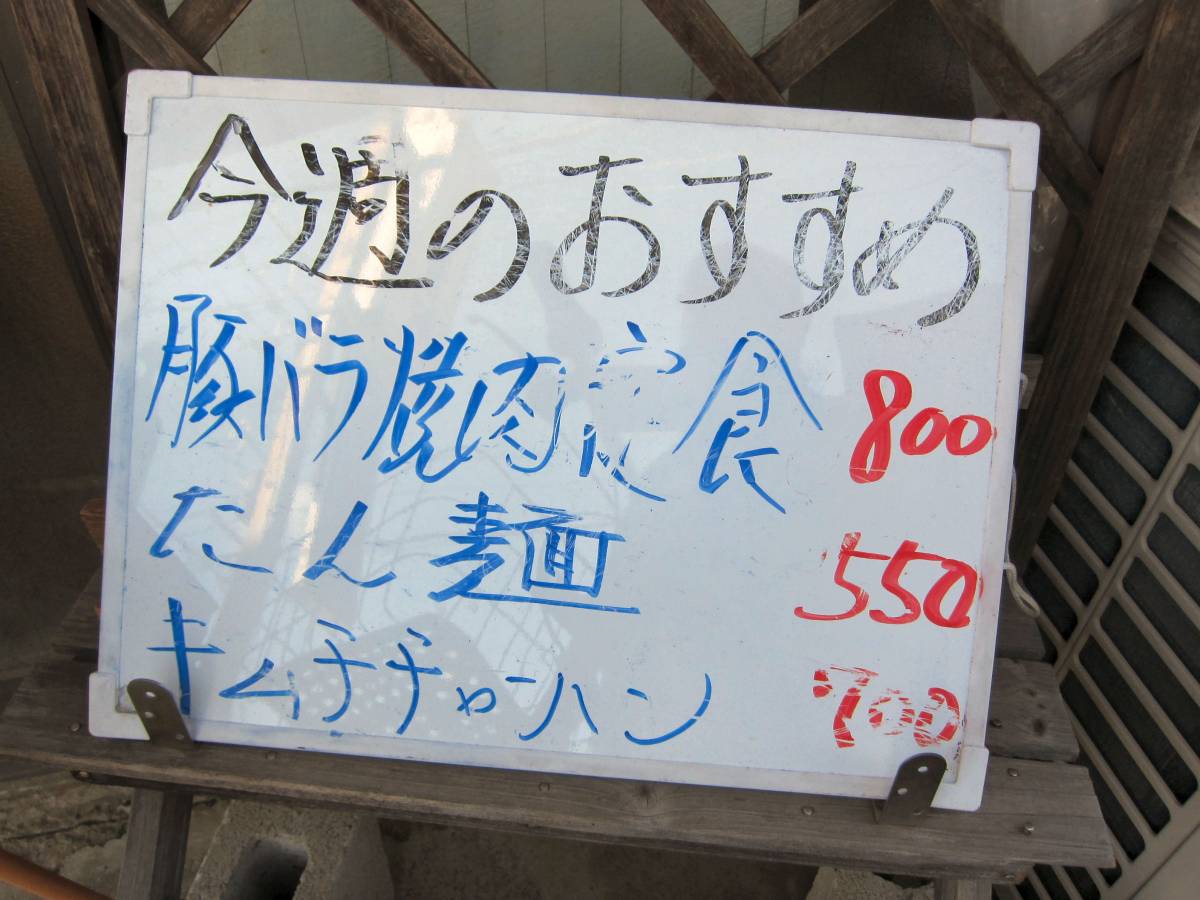 今週のおすすめ
豚バラ焼肉定食 800
たん麺 550
キムチチャーハン 700